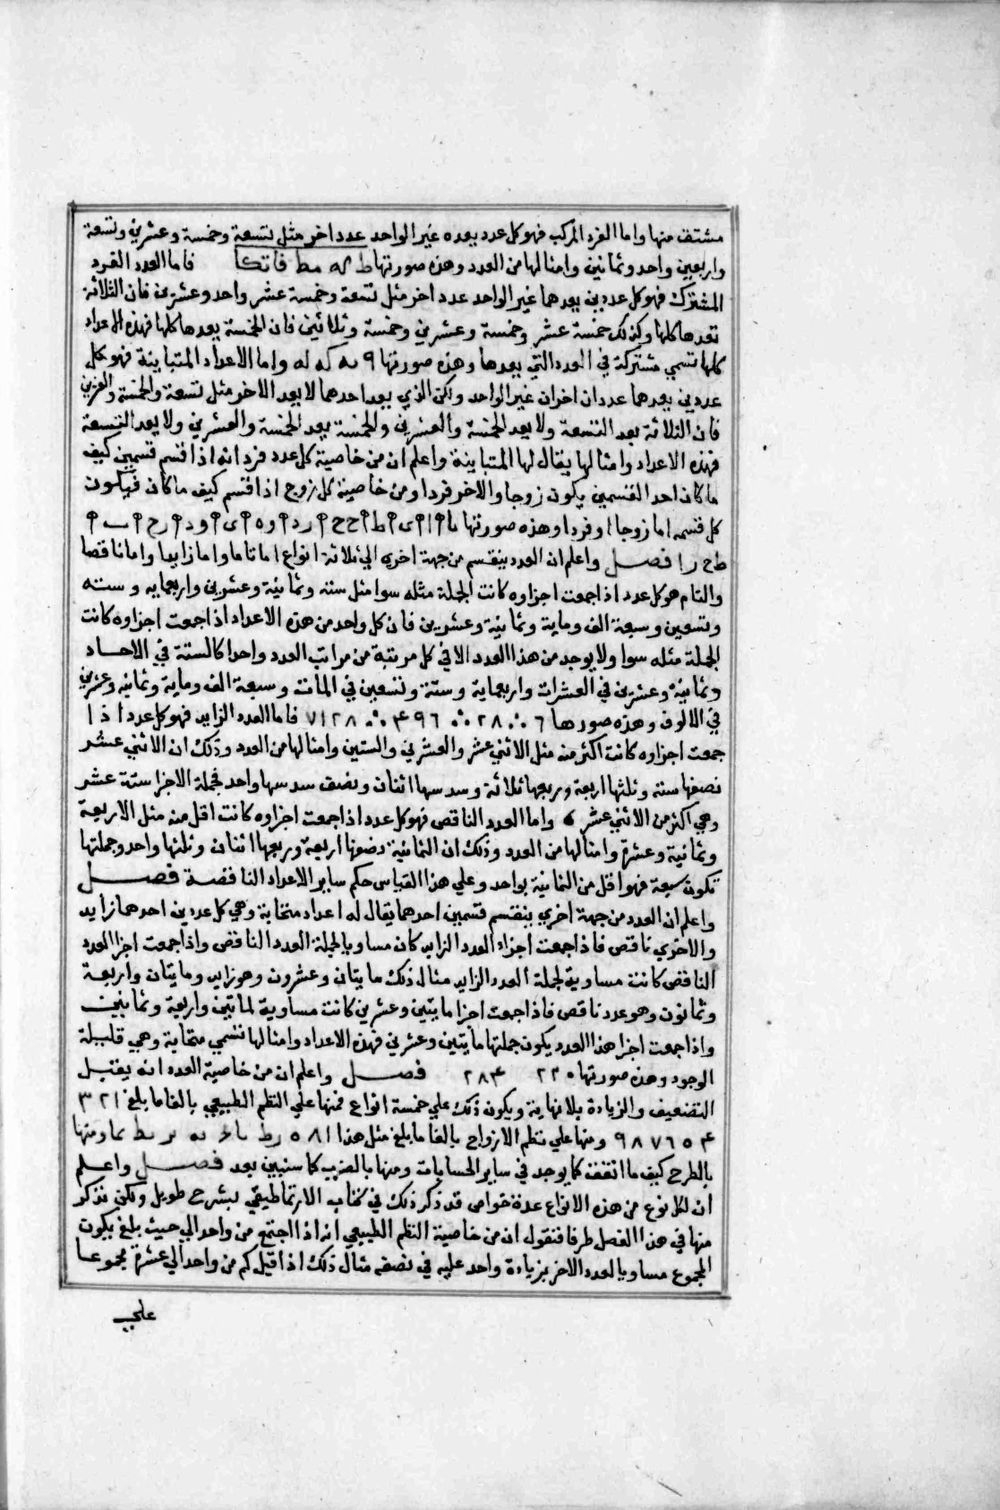 مشتق منها واما الفرد المركب فهو كل عدد بعده غير الواحد عدد اخر مثل تسعة وخمسة وعشرين وتسعة
واربعين واحد وثمانين وامثالها من العدد وهذه صورتها ط كه مط فا تكا فاما العدد الفرد
المشترك فهو كل عددين يعدهما غير الواحد عدد اخر مثل تسعة وخمسة عشر واحد وعشرين فان الثلاثة
تعدها كلها وكذلك خمسة عشر وخمسة وعشرين وخمسة وثلاثين فان الخمسة يعدها كلها فهذه الاعداد
كلها تسمي مشتركة في العدد التي يعدها وهذه صورتها ٩ يه كه له واما الاعداد المتباينة فهو كل
عددين يعدهما عددان اخران غير الواحد ولكن الذي يعد احدهما لا يعد الاخر مثل تسعة والخمسة والعشرين
فان الثلاثة يعد التسعة ولا يعد الخمسة والعشرين والخمسة يعد الخمسة والعشرين ولا يعد التسعة
فهذه الاعداد وامثالها يقال لها المتباينة واعلم ان من خاصية كل عدد فرد انه اذا قسم قسمين كيف
ما كان احد القسمين يكون زوجا والاخر فردا ومن خاصية كل زوج اذا قسم كيف ما كان فيكون
كل قسمه اما زوجا او فردا وهذه صورتها
طح را فصل واعلم ان العدد ينقسم من جهة اخري الي ثلاثة انواع اما تاما واما زايدا واما ناقصا
والتام هو كل عدد اذا جمعت اجزاوه كانت الجملة مثله سوا مثل ستة وثمانية وعشرين واربعمايه وسته
وتسعين وسبعة الف وماية وثمانية وعشرين فان كل واحد من هذه الاعداد اذا جمعت اجزاوه كانت
الجملة مثله سوا ولا يوجد من هذا العدد الا في كل مرتبة من مراتب العدد واحدا كالستة في الاحاد
وثمانية وعشرين في العشرات واربعماية وستة وتسعين في المأت وسبعة الف وماية وثمانيه وعشرين
في الالوف وهذه صورها ٦ ∴ ٢٨ ∴ ۴٩٦ ∴ ٧١٢٨ فاما العدد الزايد فهو كل عدد اذا
جمعت اجزاوه كانت اكثر منه مثل الاثني عشر والعشرين والستين وامثالها من العدد وذلك ان الاثني عشر
نصفها ستة وثلثها اربعة وربعها ثلاثة وسدسها اثنان ونصف سدسها واحد فجملة الاجزا ستة عشر
وهي اكثر من الاثني عشر واما العدد الناقص فهو كل عدد اذا جمعت اجزاوه كانت اقل منه مثل الاربعة
وثمانية وعشرة وامثالها من العدد وذلك ان الثمانية نصفها اربعة وربعها اثنان وثلثها واحد وجملتها
تكون سبعة فهو اقل من الثمانية بواحد وعلي هذا القياس حكم ساير الاعداد الناقصة فصل
واعلم ان العدد من جهة اخري ينقسم قسمين احدهما يقال له اعداد متحابة وهي كل عددين احدهما زايد
والاخري ناقص فاذا جمعت اجزاء العدد الزايد كان مساويا لجملة العدد الناقص واذا جمعت اجزا العدد
الناقص كانت مساوية لجملة العدد الزايد مثال ذلك مايتان وعشرون وهو زايد ومايتان واربعة
وثمانون وهو عدد ناقص فاذا جمعت اجزا مايتين وعشرين كانت مساوية لمايتين واربعة وثمانين
واذا جمعت اجزا هذا العدد يكون جملتها مأيتين وعشرين فهذه الاعداد وامثالها تسمي متحابة وهي قليلة
الوجود وهذه صورتها ٢٢٠ ٢٨۴ فصل واعلم ان من خاصية العدد انه يقبل
التضعيف والزيادة بلا نهاية ويكون ذلك علي خمسة انواع فمنها علي النظم الطبيعي بالغا ما بلغ ٣٢١
۴ ٥ ٦ ٧ ٨ ٩ ومنها علي نظم الازواج بالغا ما بلغ مثل هذا ومنها
بالطرح كيف ما اتفقت كما يوجد في ساير الحسابات ومنها بالضرب كما سنبين بعد فصل واعلم
ان لكل نوع من هذه الانواع عدة خواص قد ذكر ذلك في كتاب الارثماطيقي بشرح طويل ولكن نذكر
منها في هذا الفصل طرفا فنقول ان من خاصية النظم الطبيعي انه اذا اجتمع من واحد الي حيث بلغ يكون
المجموع مساويا لعدد الاخر بزيادة واحد عليه في نصفه مثال ذلك اذا قيل كم من واحد الي عشرة مجموعا
علي